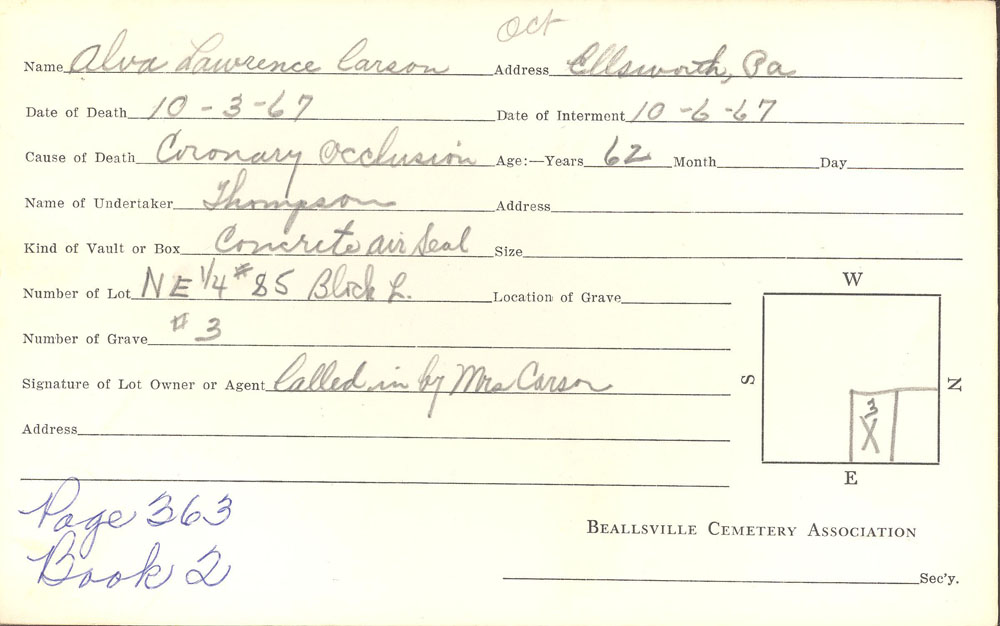 Oct
Name Alva Lawrence Carson Address Ellsworth, Pa
Date of Death 10-3-67 Date of Interment 10-6-67
Cause of Death Coronary Occlusion Age:—Years 62 Month Day
Name of Undertaker Thompson Address
Kind of Vault or Box Concrete air Seal Size
Number of Lot NE 1/4 #85 Block L. Location of Grave
Number of Grave #3
Signature of Lot Owner or Agent Called in by Mrs Carson
Address
W
S
N
3
X
E
Page 363
Book 2
BEALLSVILLE CEMETERY ASSOCIATION
Sec'y.